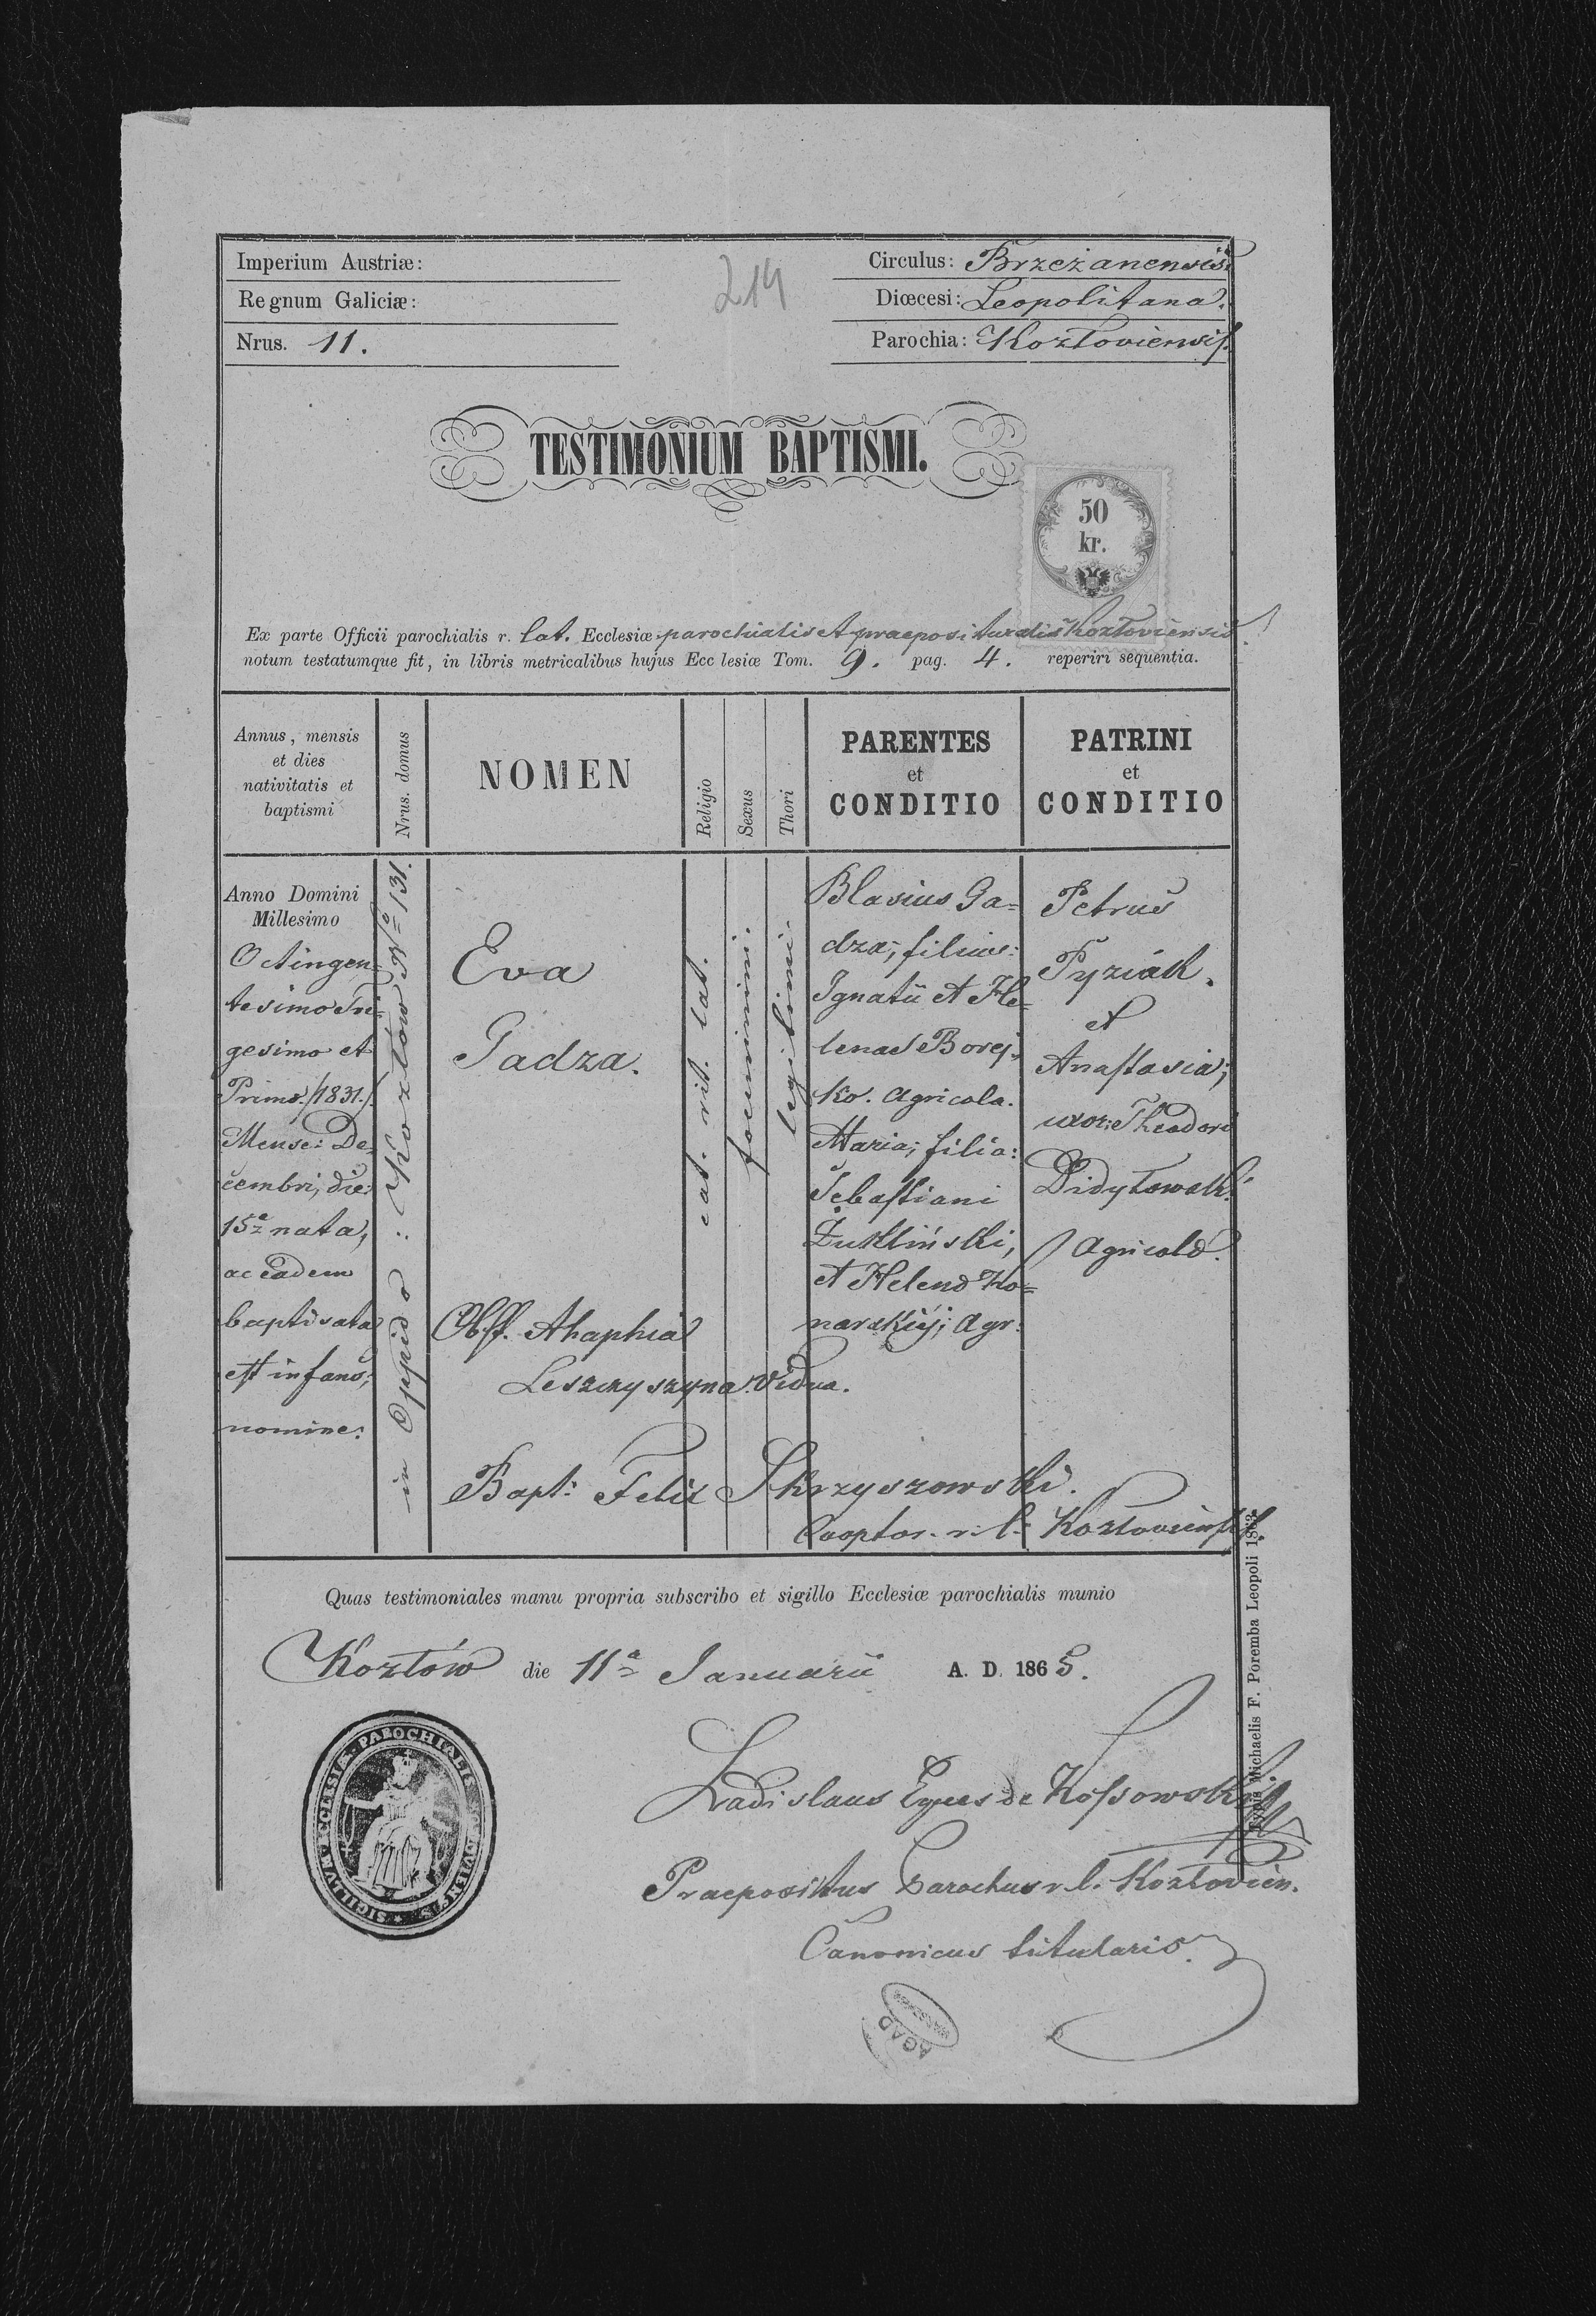 Imperium Austriæ:
Regnum Galiciæ:
Nrus. 11.
214
Circulus: Brzeżanensis.
Diœcesi: Leopolitana.
Parochia: Kozłoviensis.
TESTIMONIUM BAPTISMI.
50
kr.
Ex parte Officii parochialis r. lat. Ecclesiæ parochialis et praeposituralis Kozłoviensis
notum testatumque fit, in libris metricalibus hujus Ecclesiæ Tom. 9. pag. 4. reperiri sequentia.
Annus, mensis
et dies
nativitatis et
baptismi
Nrus. domus
NOMEN
Religio
Sexus
Thori
PARENTES
et
CONDITIO
PATRINI
et
CONDITIO
Anno Domini
Millesimo
Octingen-
tesimo Tri-
gesimo et
Primo /1831./
Mense: De-
cembri, die:
15a nata,
ac eadem
baptisata
est infans,
nomine:
in Oppido : Kozłow No 131.
Eva
Gadza.
Obst. Ahaphia
Leszczyszyna. Vidua.
Bapt: Felix Skrzyszowski.
Cooptor. r. l. Kozłoviensis.
cat. rit. lat.
foeminini.
legitimi.
Blasius Ga=
dza; filius:
Ignatii et He-
lenae Borej-
ko. Agricola.
Maria; filia:
Sebastiani
Żukliński,
et Helena Ko=
narskij; Agr:
Petrus
Pyziak.
et
Anastasia;
uxor: Theodori
Didyłowski
Agricola.
Quas testimoniales manu propria subscribo et sigillo Ecclesiæ parochialis munio
Kozłów die 11a Januarii A. D. 1865.
SIGILLVM ECCLESIÆ PAROCHIALIS
Ladislaus Eques de Kossowski
Praepositus Parochus r. l. Kozłovien.
Canonicus titularis.
AGAD
Typis Michaelis F. Poremba Leopoli 1863.